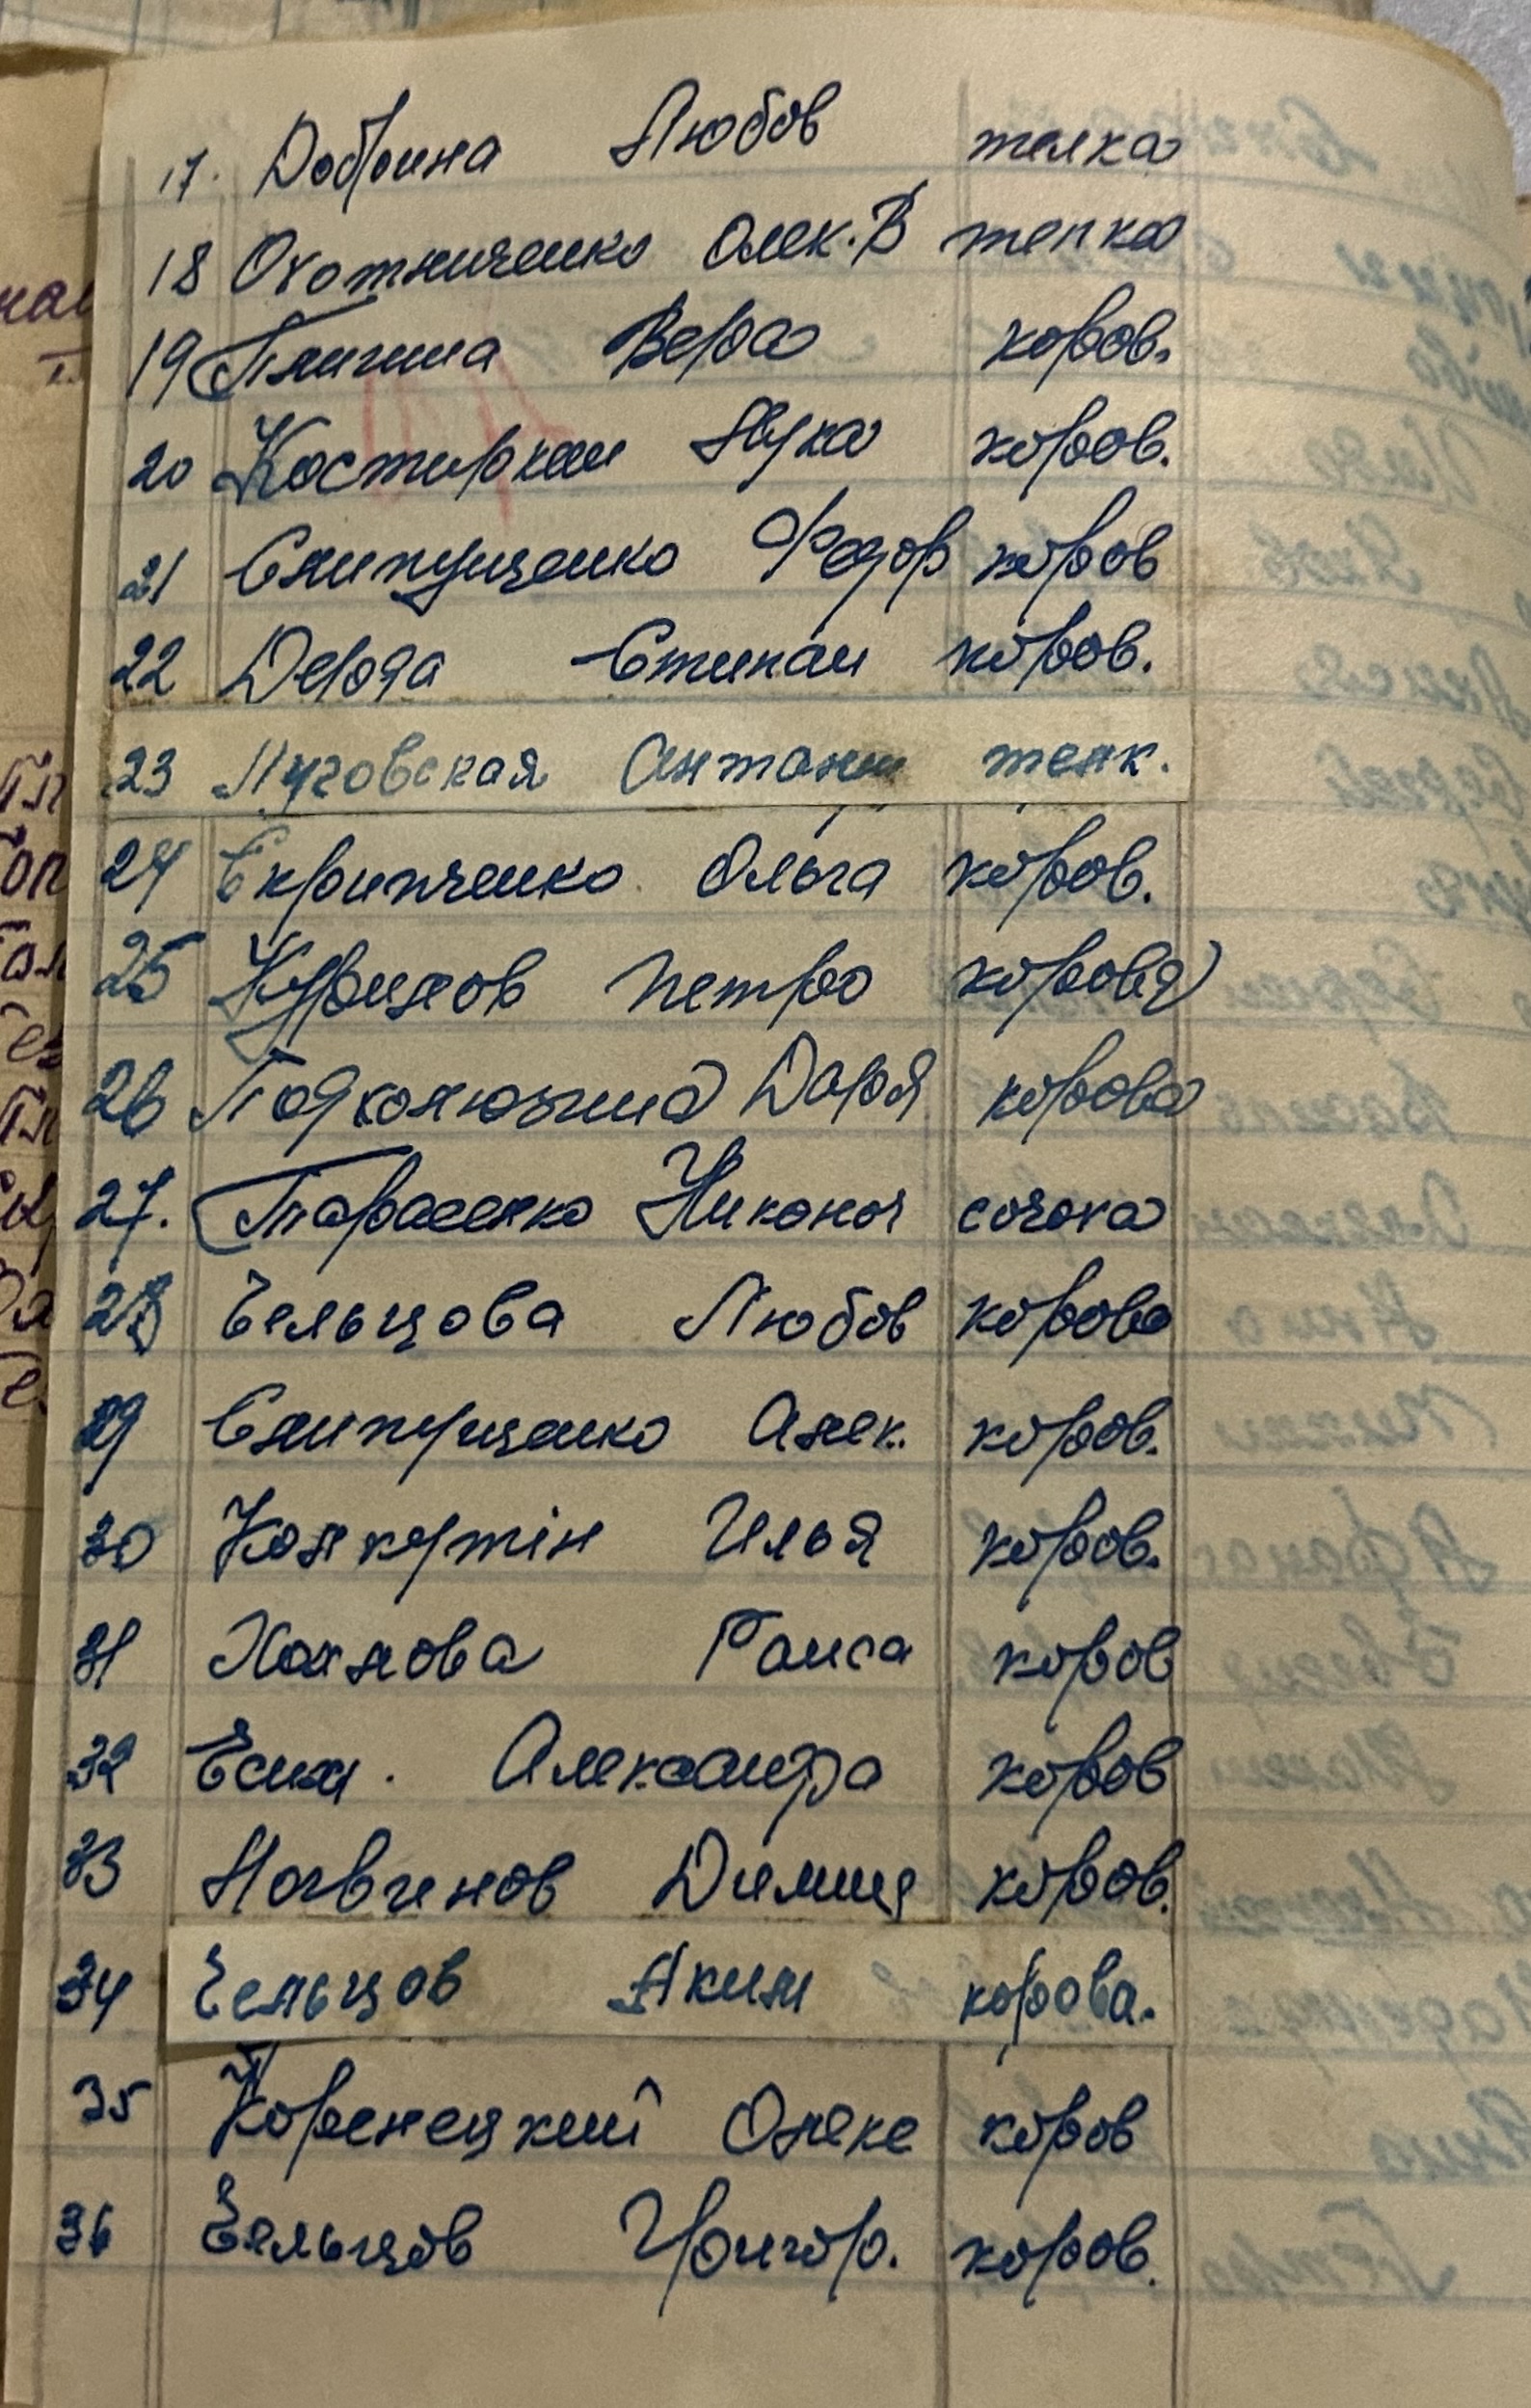 17. Добрина Любов телка
18 Охотниченко Олек. В телка
19 Глигина Вера коров.
20 Костиркин Лука коров.
21 Слипущенко Федор коров
22 Деряда Стипан коров.
23 Луговская Антани телк.
24 Скрипченко Ольга коров.
25 Курилов Петро корова
26 Подколюзина Даря корова
27. Тарасенко Никоноr
28 Ельцова Любов корова
29 Слипущенко Алек. коров.
30 Колкутін Илья коров.
31 Хохлова Раиса коров
32 Есих. Александра коров
33 Логвинов Димид коров.
34 Ельцов Аким корова.
35 Коренецкий Олекс коров
36 Ельцов Григор. коров.